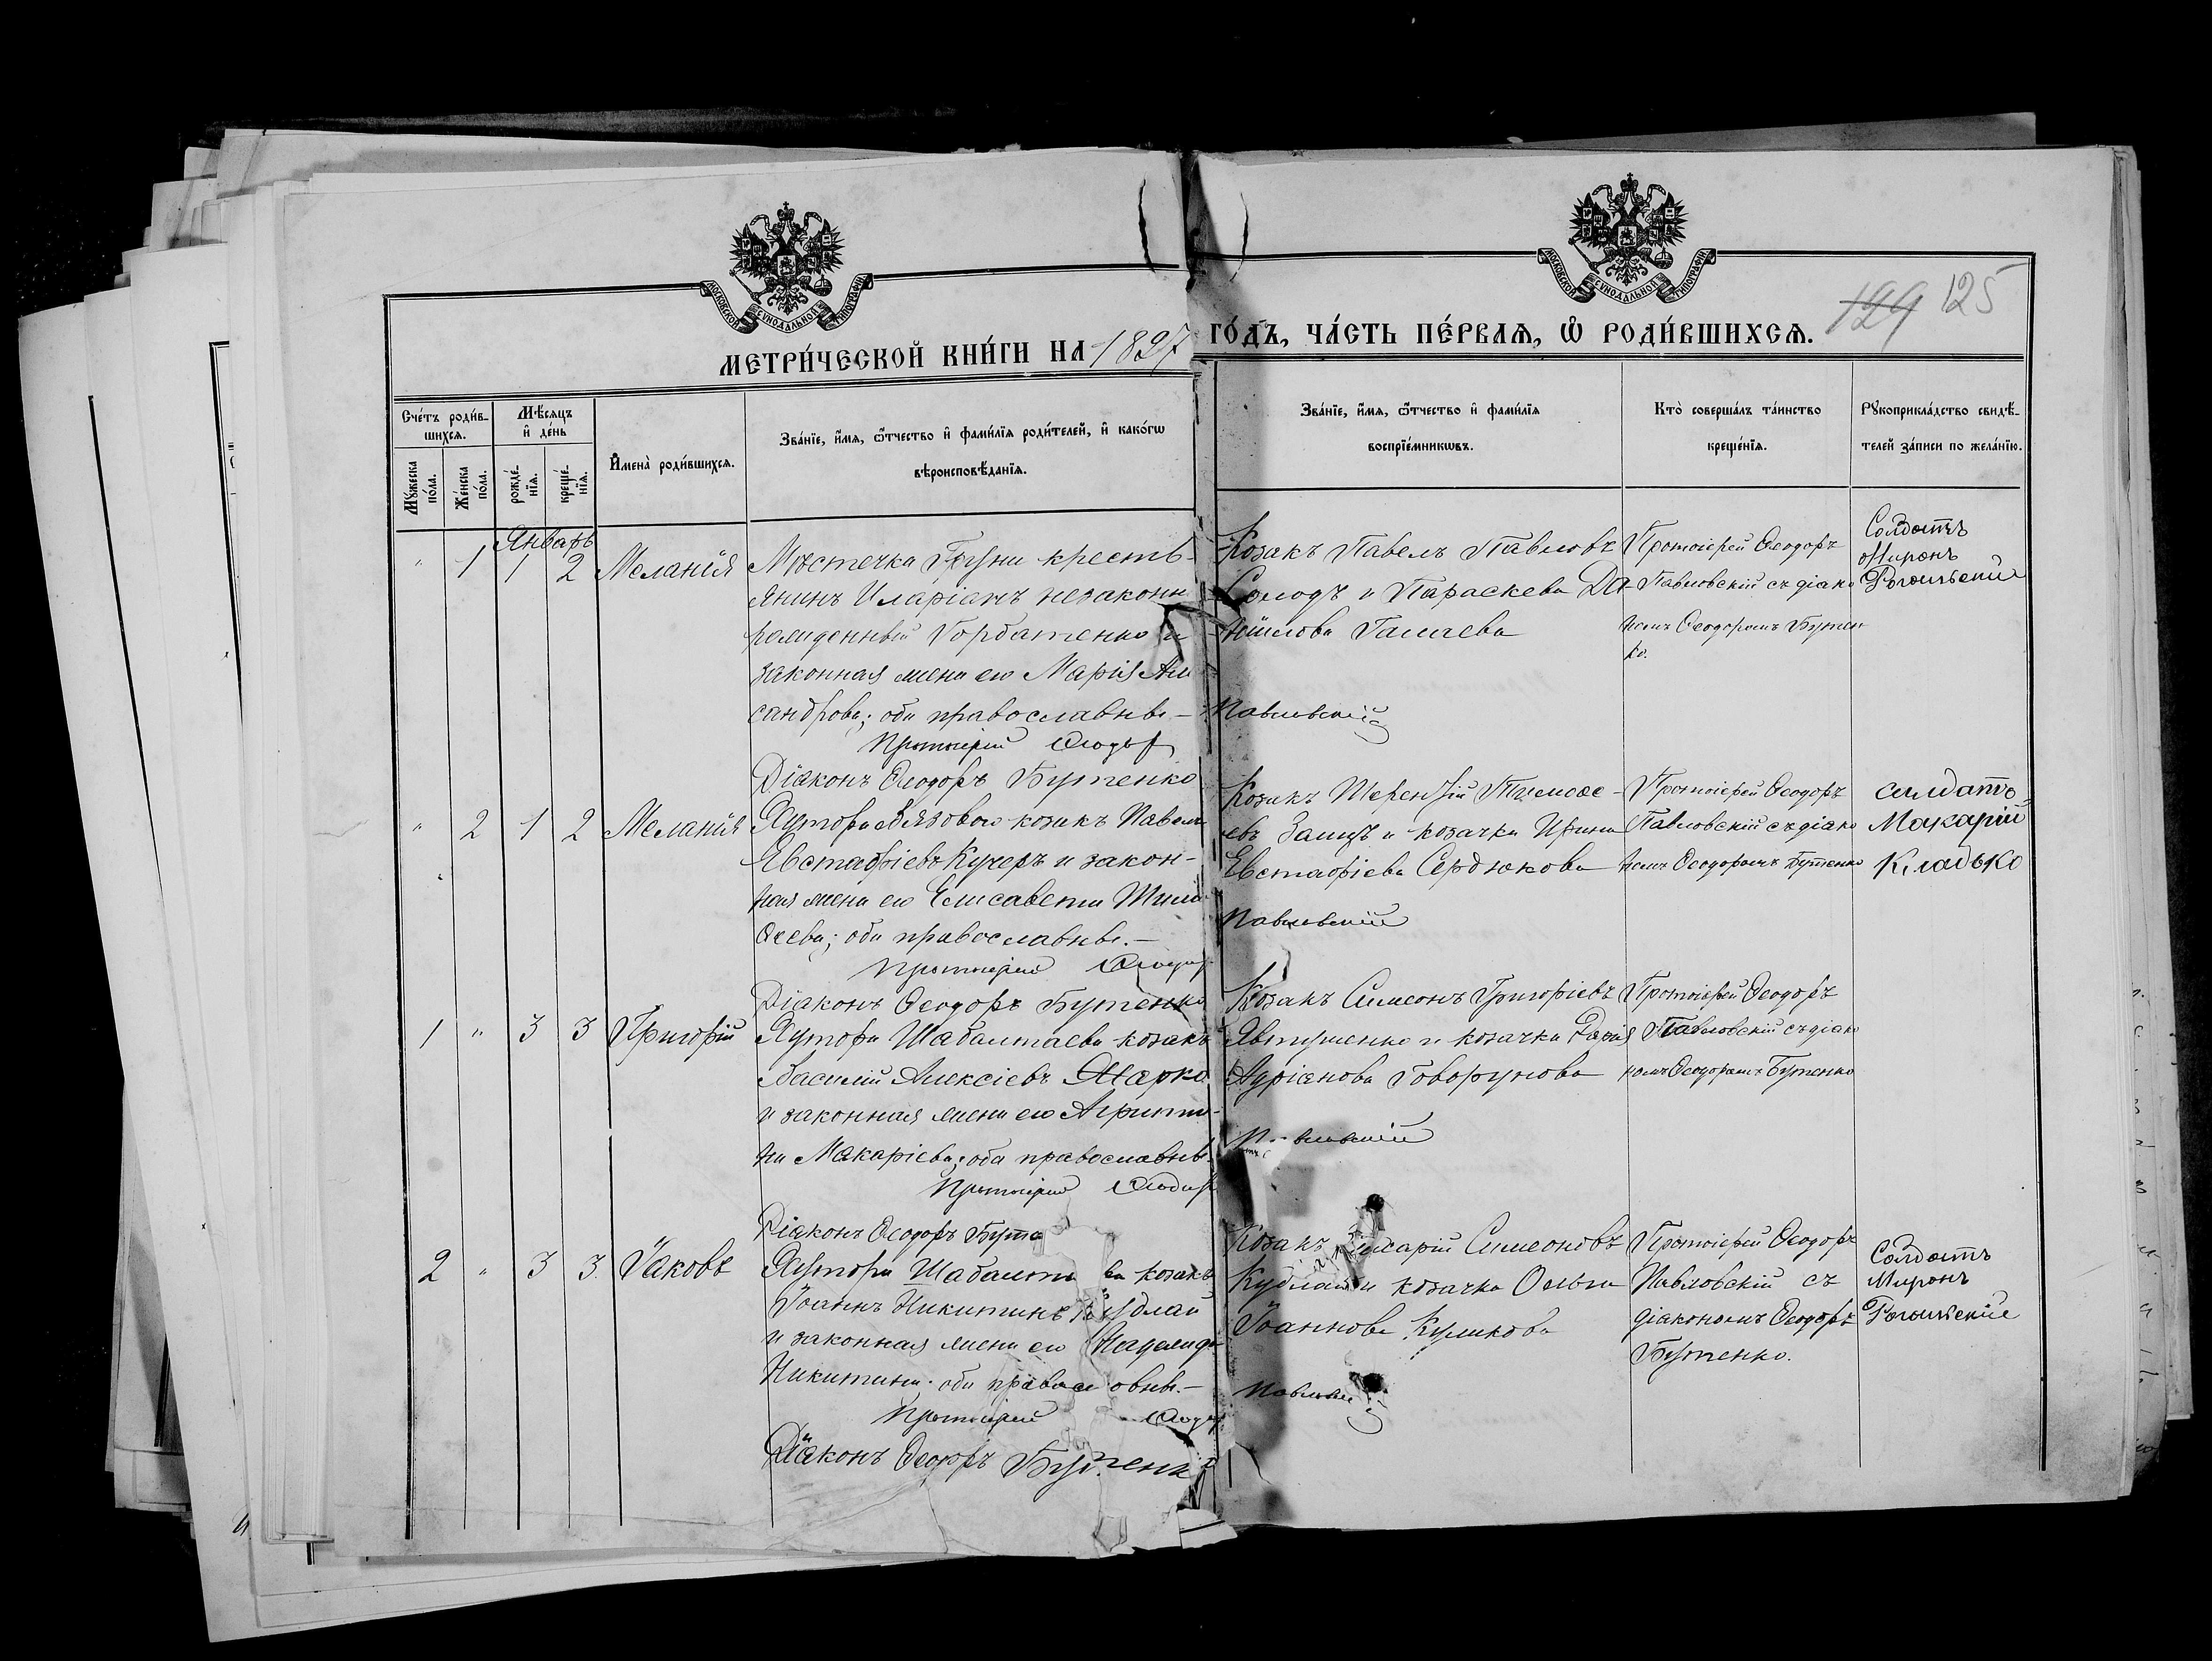 МОСКОВСКОЙ СѴНОДАЛЬНОЙ ТИПОГРАФІИ
МОСКОВСКОЙ СѴНОДАЛЬНОЙ ТИПОГРАФІИ
129 125
МЕТРИ́ЧЕСКОЙ КНИ́ГИ НА 1897 ГО́ДЪ, ЧА́СТЬ ПЕ́РВАѦ, Ѡ҆ РОДИ́ВШИХСѦ.
Сче́тъ роди́в-
шихсѧ.
Мꙋ́жеска по́ла.
Же́нска по́ла.
Мѣ́сяцъ
и҆ де́нь
рожде́-
нїѧ.
креще́-
нїѧ.
И҆мена̀ роди́вшихсѧ.
Зва́нїе, и҆́мѧ, ѻ҆́тчество и҆ фами́лїѧ роди́телей, и҆ како́гѡ
вѣроисповѣ́данїѧ.
Зва́нїе, и҆́мѧ, ѻ҆́тчество и҆ фами́лїѧ
воспрїе́мникѡвъ.
Кто̀ соверша́лъ та́инство
креще́нїѧ.
Рꙋкоприкла́дство свидѣ́-
телей за́писи по жела́нїю.
Январь
" 1 1 2 Меланія
Мѣстечка Груни кресть-
янинъ Иларіонъ незаконно
рожденный Горбатенко и
законная жена его Марія Але
сандрова; оба православны.—
Протоіерей Ѳеодоръ
Павловскій
Діаконъ Ѳеодоръ Бутенко
Козакъ Павелъ Павловъ
Солодъ и Параскева Да-
ніилова Галаева
Протоіерей Ѳеодоръ
Павловскій съ діако
номъ Ѳеодоромъ Бутен
ко.
Солдатъ
Миронъ
" 2 1 2 Меланія
Хутора козакъ Павелъ
Евстафіевъ Кучеръ и закон-
ная жена его Елисавета Тимо
ѳеева; оба православны.—
Протоіерей Ѳеодоръ
Павловскій
Діаконъ Ѳеодоръ Бутенко
Козакъ Терентій Тимоѳе-
евъ Заяцъ и козачка Ирина
Евстафіева Сердюкова
Протоіерей Ѳеодоръ
Павловскій съ діако
номъ Ѳеодоромъ Бутенко
солдатъ
Макарій
Кладько
1 " 3 3 Григорій
Хутора Шабалтаева козакъ
Василій Алексіевъ Марко
и законная жена его Агрипи-
на Макаріева; оба православны.
Протоіерей Ѳеодоръ
Павловскій
Діаконъ Ѳеодоръ Бутенко
Козакъ Симеонъ Григоріевъ
Явтушенко и козачка Дарія
Адріанова Говорунова
Протоіерей Ѳеодоръ
Павловскій съ діако
номъ Ѳеодоромъ Бутенко
2 " 3 3 Іаковъ
Хутора Шабалта ва козакъ
Іоаннъ Никитинъ Кудлай
и законная жена его
Никитина; оба правосл овны.—
Протоіерей Ѳеодоръ
Діаконъ Ѳеодоръ Бутенко
Козакъ Симеоновъ
Кудлай и козачка Ольга
Іоаннова Куликова
Протоіерей Ѳеодоръ
Павловскій съ
діакономъ Ѳеодоръ
Бутенко.
Солдатъ
Миронъ